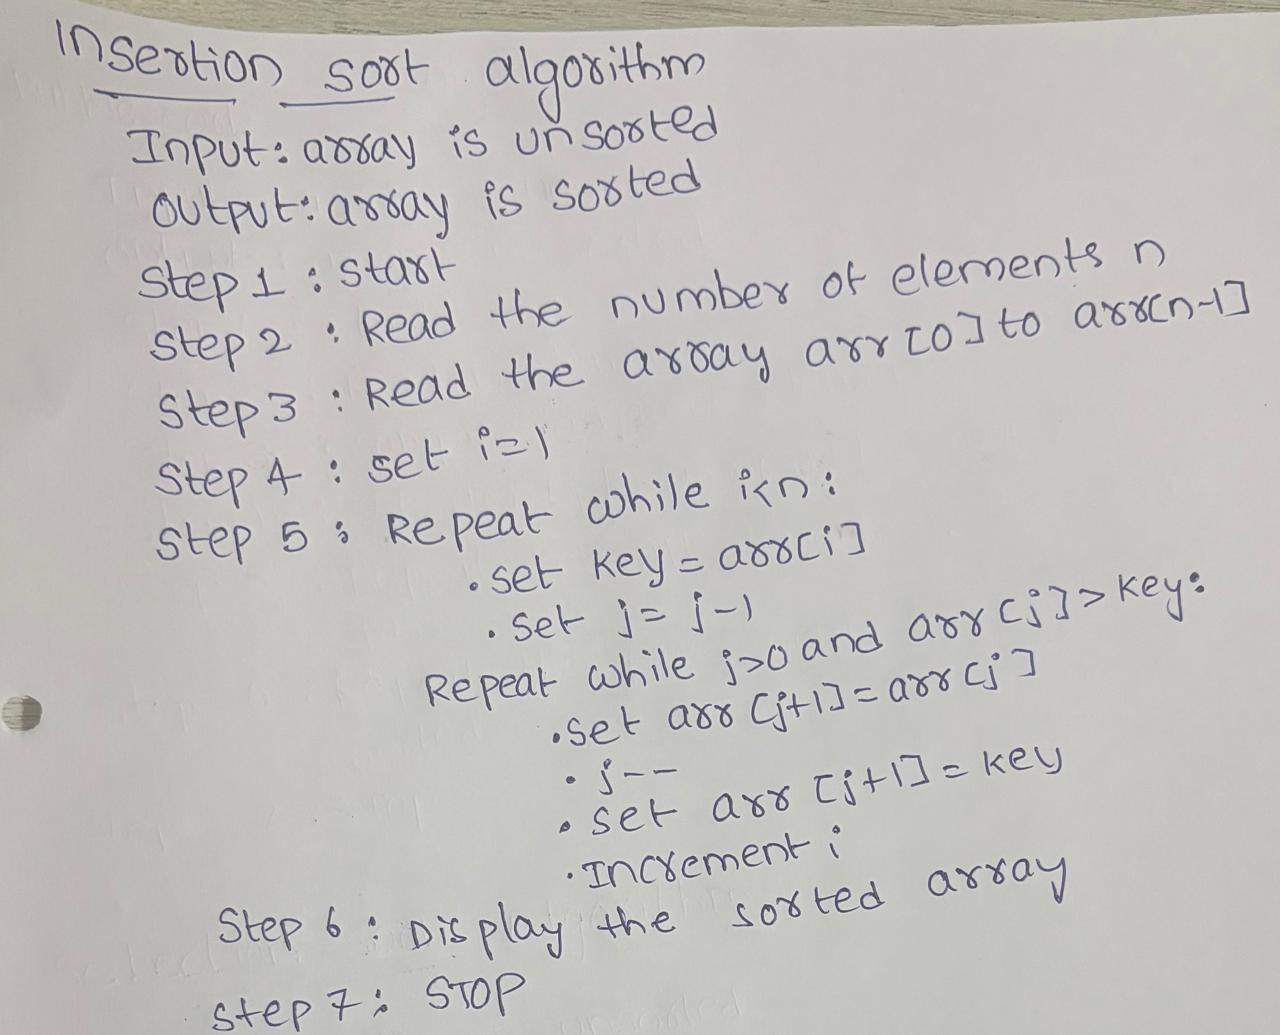 Insertion sort algorithm
Input: array is unsorted
output: array is sorted
Step 1 : start
Step 2 : Read the number of elements n
Step 3 : Read the array arr[0] to arr[n-1]
Step 4 : set i=1
Step 5 : Repeat while i<n:
• set key = arr[i]
• set j= j-1
Repeat while j>0 and arr[j]>key:
• set arr[j+1]=arr[j]
• j--
• set arr[j+1]=key
• Increment i
Step 6 : Display the sorted array
Step 7 : STOP